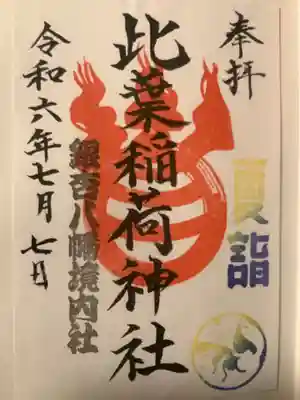 奉拝
夏詣
此葉稲荷神社
銀杏八幡境内社
令和六年七月七日